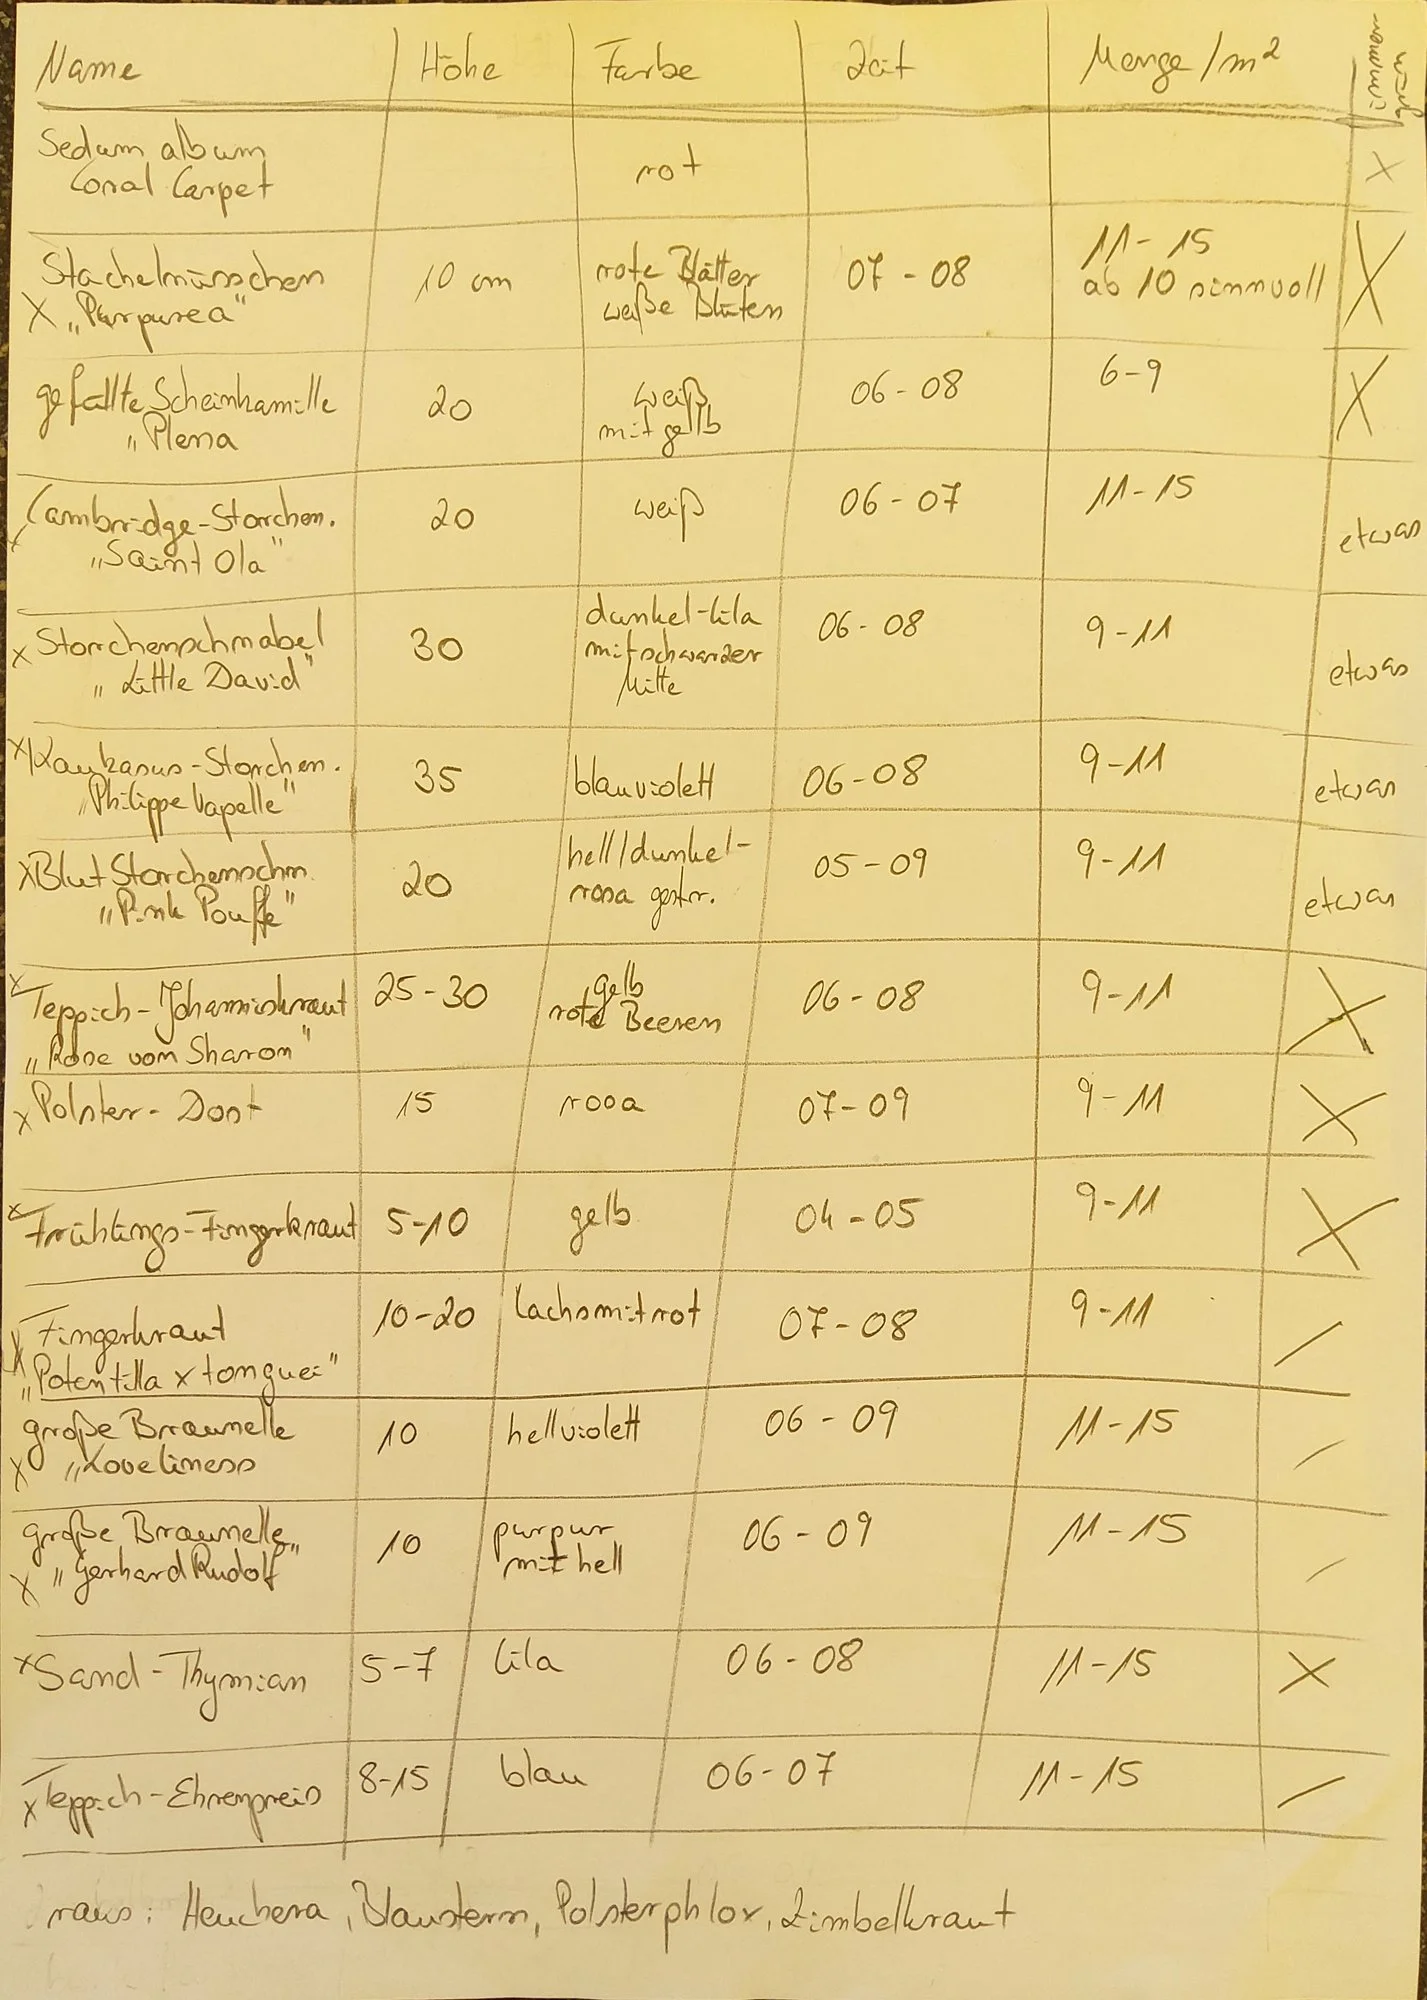 Name Höhe Farbe Zeit Menge/m² immer
grün
Sedum album rot X
Coral Carpet
Stachelnüsschen 10 cm rote Blätter 07 - 08 11 - 15 X
X „Purpurea“ weiße Blüten ab 10 sinnvoll
gefüllte Scheinkamille 20 weiß 06 - 08 6-9 X
„Plena mit gelb
Cambridge-Storchen. 20 weiß 06 - 07 11 - 15 etwas
x „Saint Ola“
x Storchenschnabel 30 dunkel-lila 06 - 08 9-11 etwas
„Little David“ mit schwarzer
Mitte
x Kaukasus-Storchen. 35 blauviolett 06-08 9-11 etwas
„Philippe Vapelle“
X Blut Storchenschn. 20 hell/dunkel- 05 - 09 9-11 etwas
„Pink Pouffe“ rosa gestr.
x Teppich-Johanniskraut 25-30 gelb 06 - 08 9-11 X
„Rose von Sharon“ rote Beeren
x Polster-Dost 15 rosa 07-09 9-11 X
x Frühlings-Fingerkraut 5-10 gelb 04 - 05 9-11 X
X Fingerkraut 10-20 lachs mit rot 07-08 9-11 /
„Potentilla x tonguei“
große Braunelle 10 hellviolett 06 - 09 11-15 /
x „Loveliness
große Braunelle 10 purpur 06 - 09 11-15 /
X „Gerhard Rudolf“ mit hell
x Sand-Thymian 5-7 lila 06 - 08 11-15 X
x Teppich-Ehrenpreis 8-15 blau 06-07 11-15 /
raus: Heuchera, Blaustern, Polsterphlox, Zimbelkraut